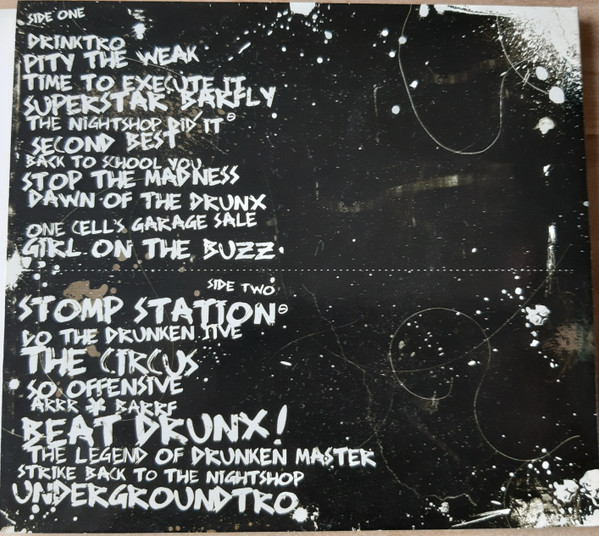 SIDE ONE
DRINKTRO
PITY THE WEAK
TIME TO EXECUTE IT
SUPERSTAR BARFLY
THE NIGHTSHOP DID IT
SECOND BEST
BACK TO SCHOOL YOU
STOP THE MADNESS
DAWN OF THE DRUNX
ONE CELL'S GARAGE SALE
GIRL ON THE BUZZ
SIDE TWO
STOMP STATION
DO THE DRUNKEN JIVE
THE CIRCUS
SO OFFENSIVE
ARRR * BARRF
BEAT DRUNX!
THE LEGEND OF DRUNKEN MASTER
STRIKE BACK TO THE NIGHTSHOP
UNDERGROUNDTRO